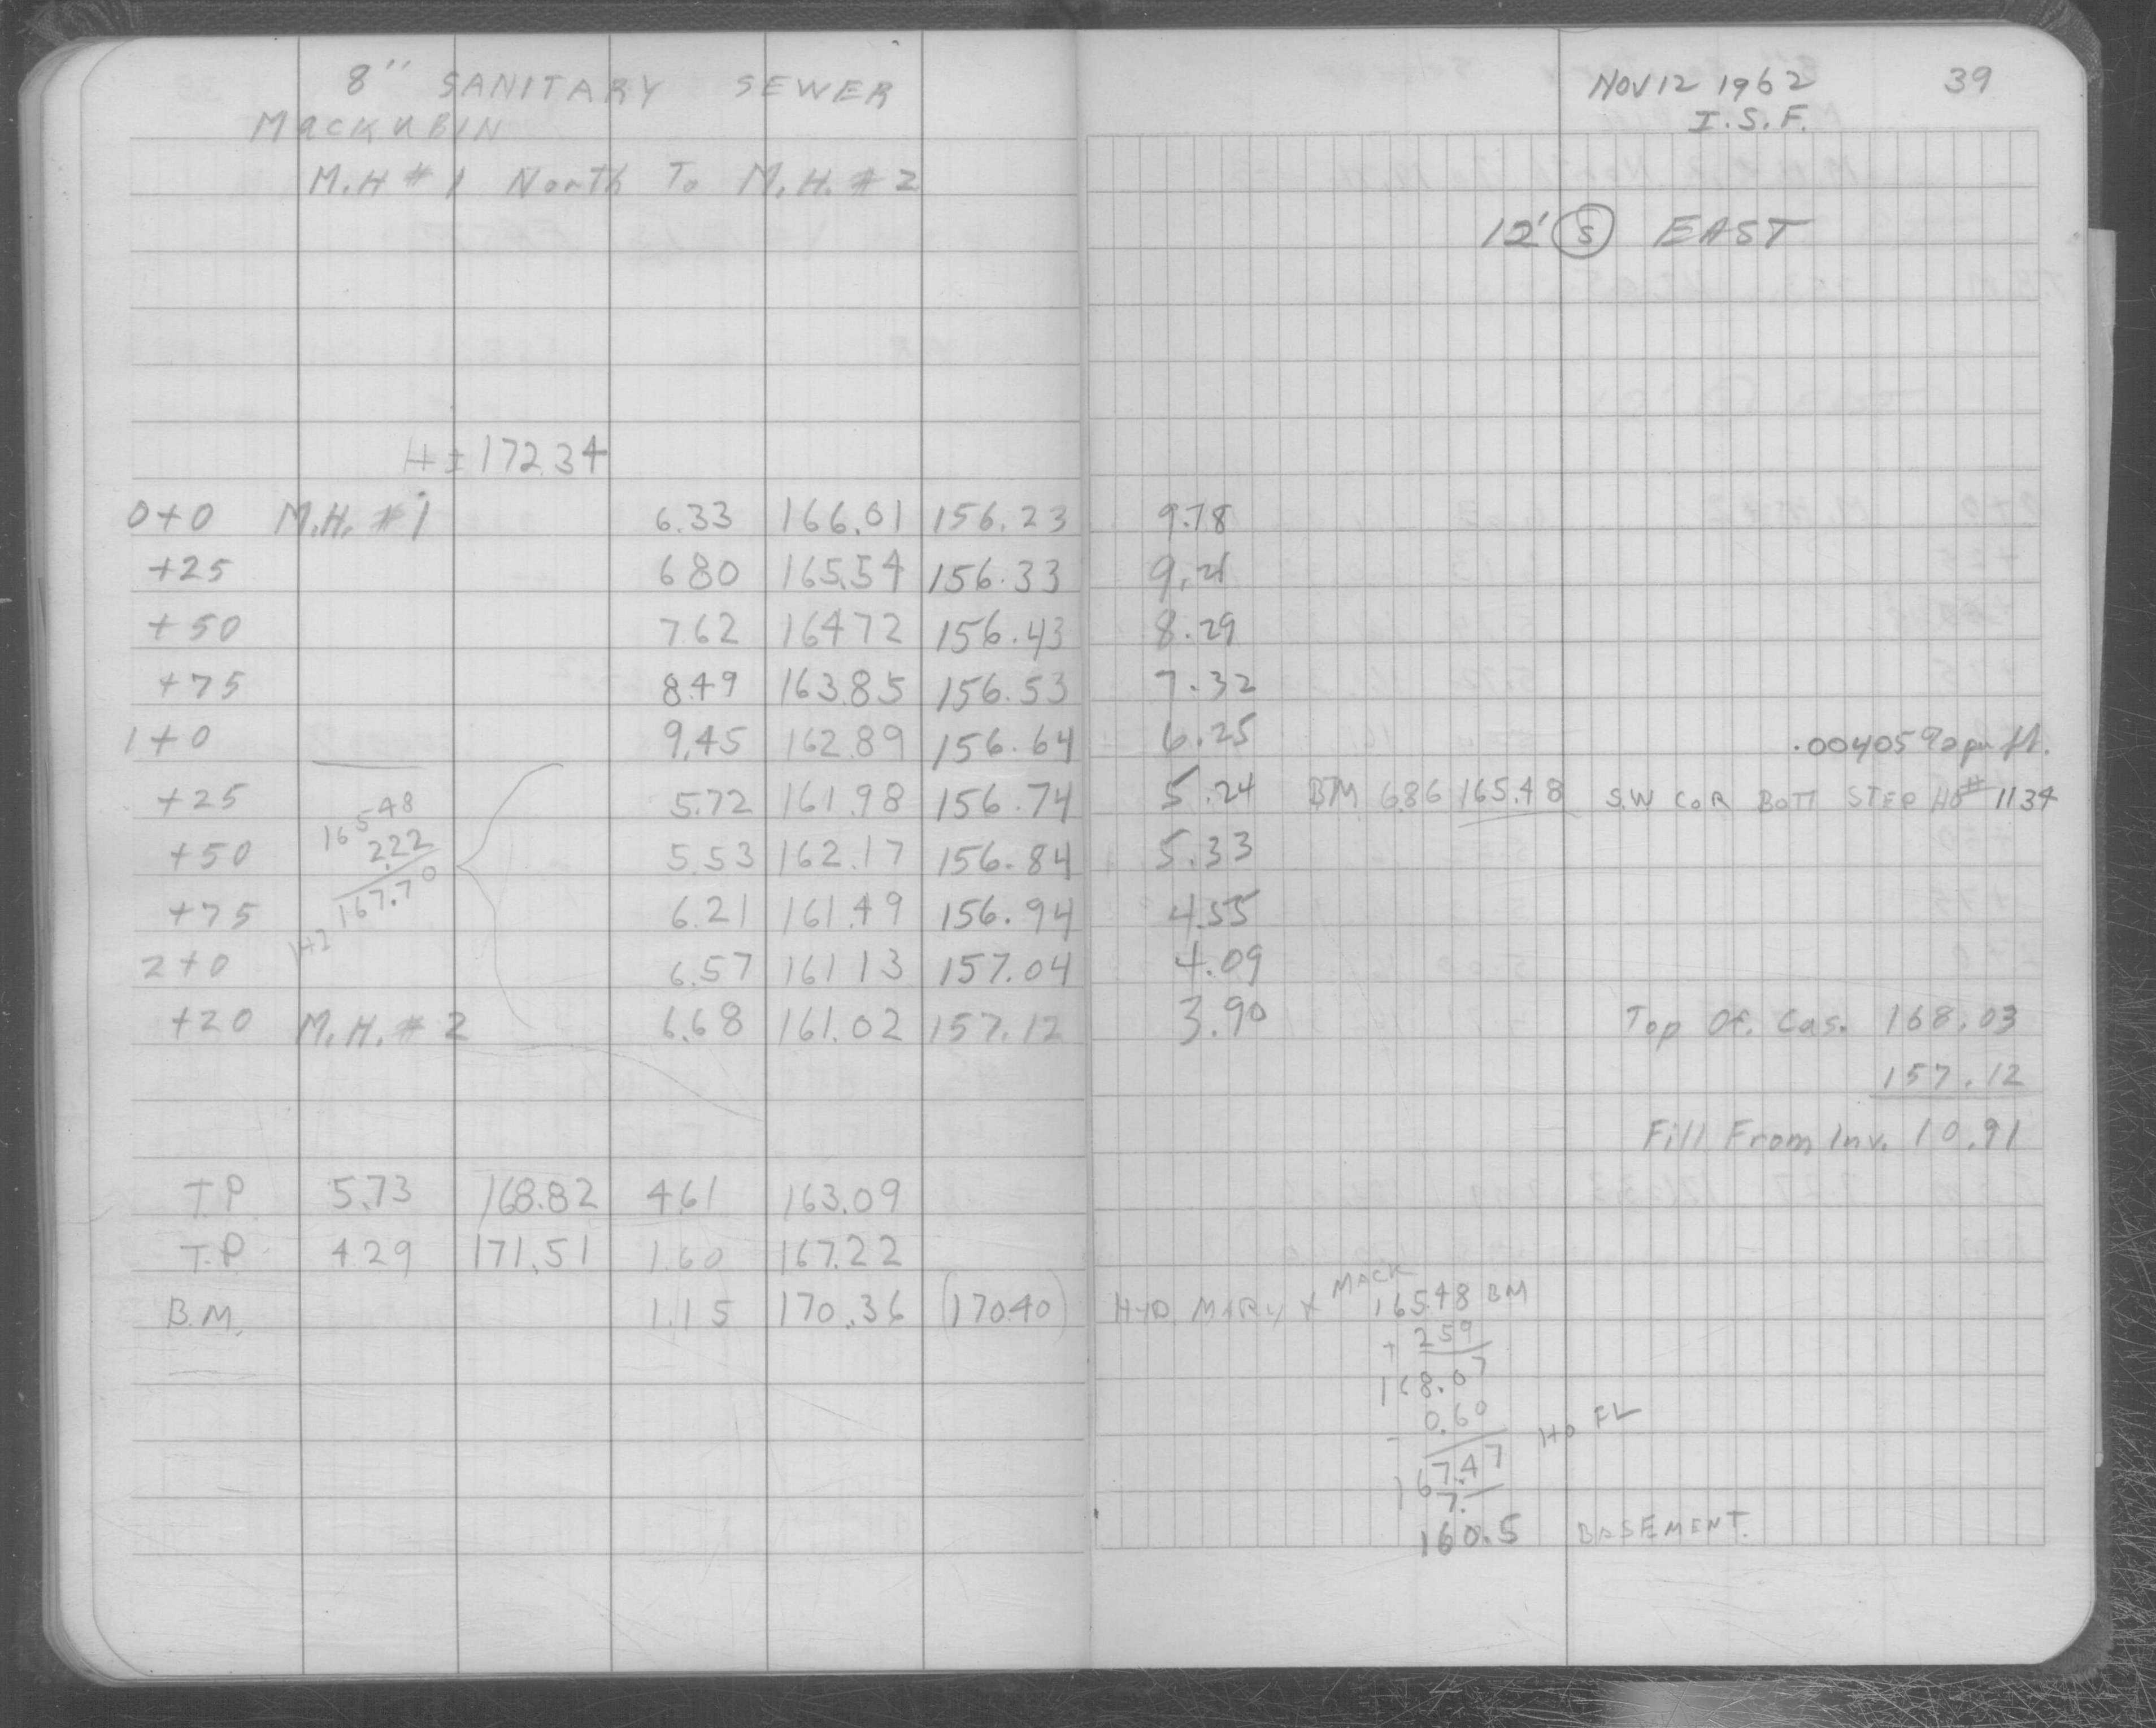 8" SANITARY SEWER NOV 12 1962 39
MACKUBIN I.S.F.
M.H # 1 North To M.H. # 2
12' (S) EAST
HI 172.34
0+0 M.H. #1 6.33 166.01 156.23 9.78
+25 6 80 165.54 156.33 9.21
+50 7.62 164 72 156.43 8.29
+75 8.49 163.85 156.53 7.32
1+0 9.45 162.89 156.64 6.25 .004059 per ft.
+25 5.72 161.98 156.74 5.24 BM 6.86 165.48 S.W COR BOTT STEP HO # 1134
165.48
+50 2.22 5.53 162.17 156.84 5.33
+75 167.70 6.21 161.49 156.94 4.55
HI
2+0 6.57 161 13 157.04 4.09
+20 M.H. # 2 6.68 161.02 157.12 3.90 Top Of. Cas. 168.03
157.12
Fill From Inv. 10.91
T.P. 5.73 168.82 4.61 163.09
T.P. 4 29 171.51 1.60 167.22
B.M. 1.15 170.36 (170.40) HYD MARY & MACK 165.48 BM
+ 2 59
168.07
- 0.60
167.47 HO FL
7.
160.5 BASEMENT.